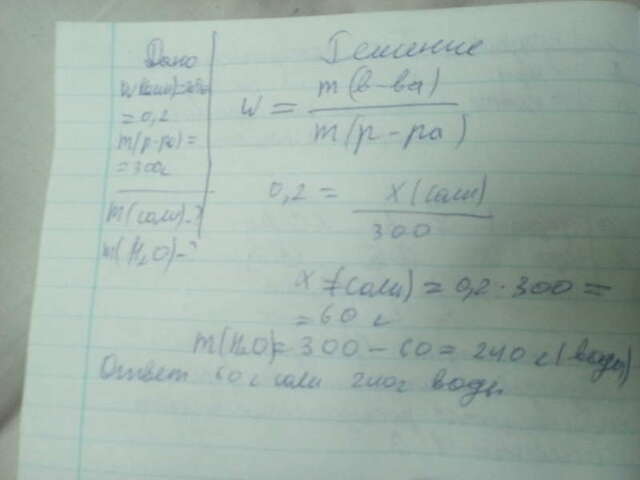 Дано
w(соли)=20%
=0,2
m(р-ра)=
=300г
m(соли)-?
m(H₂O)-?
Решение
w = m(в-ва)
m(р-ра)
0,2 = x(соли)
300
x (соли) = 0,2·300=
=60 г
m(H₂O)= 300-60=240 г (воды)
Ответ 60 г соли 240г воды